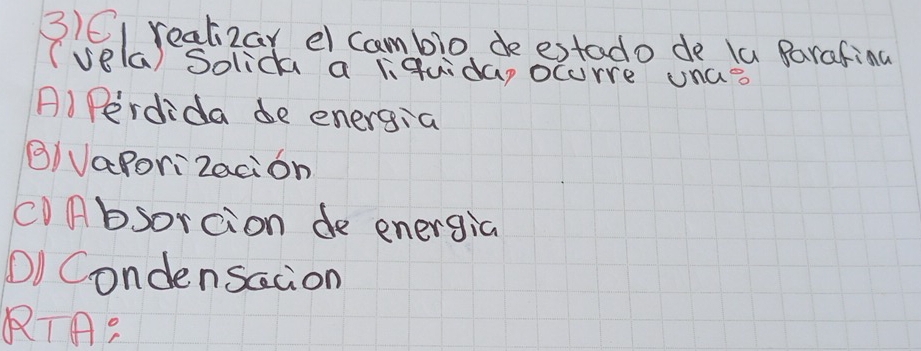 3) El realizar el cambio de estado de la Parafina
(vela) Solida a liquida, ocurre una:
A) Pérdida de energia
B) Vaporización
C) Absorcion de energia
D) Condensacion
RTA: